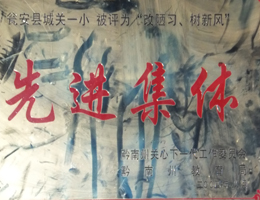 瓮安县城关一小 被评为“改陋习、树新风”
先进集体
黔南州关心下一代工作委员会
黔南州教育局